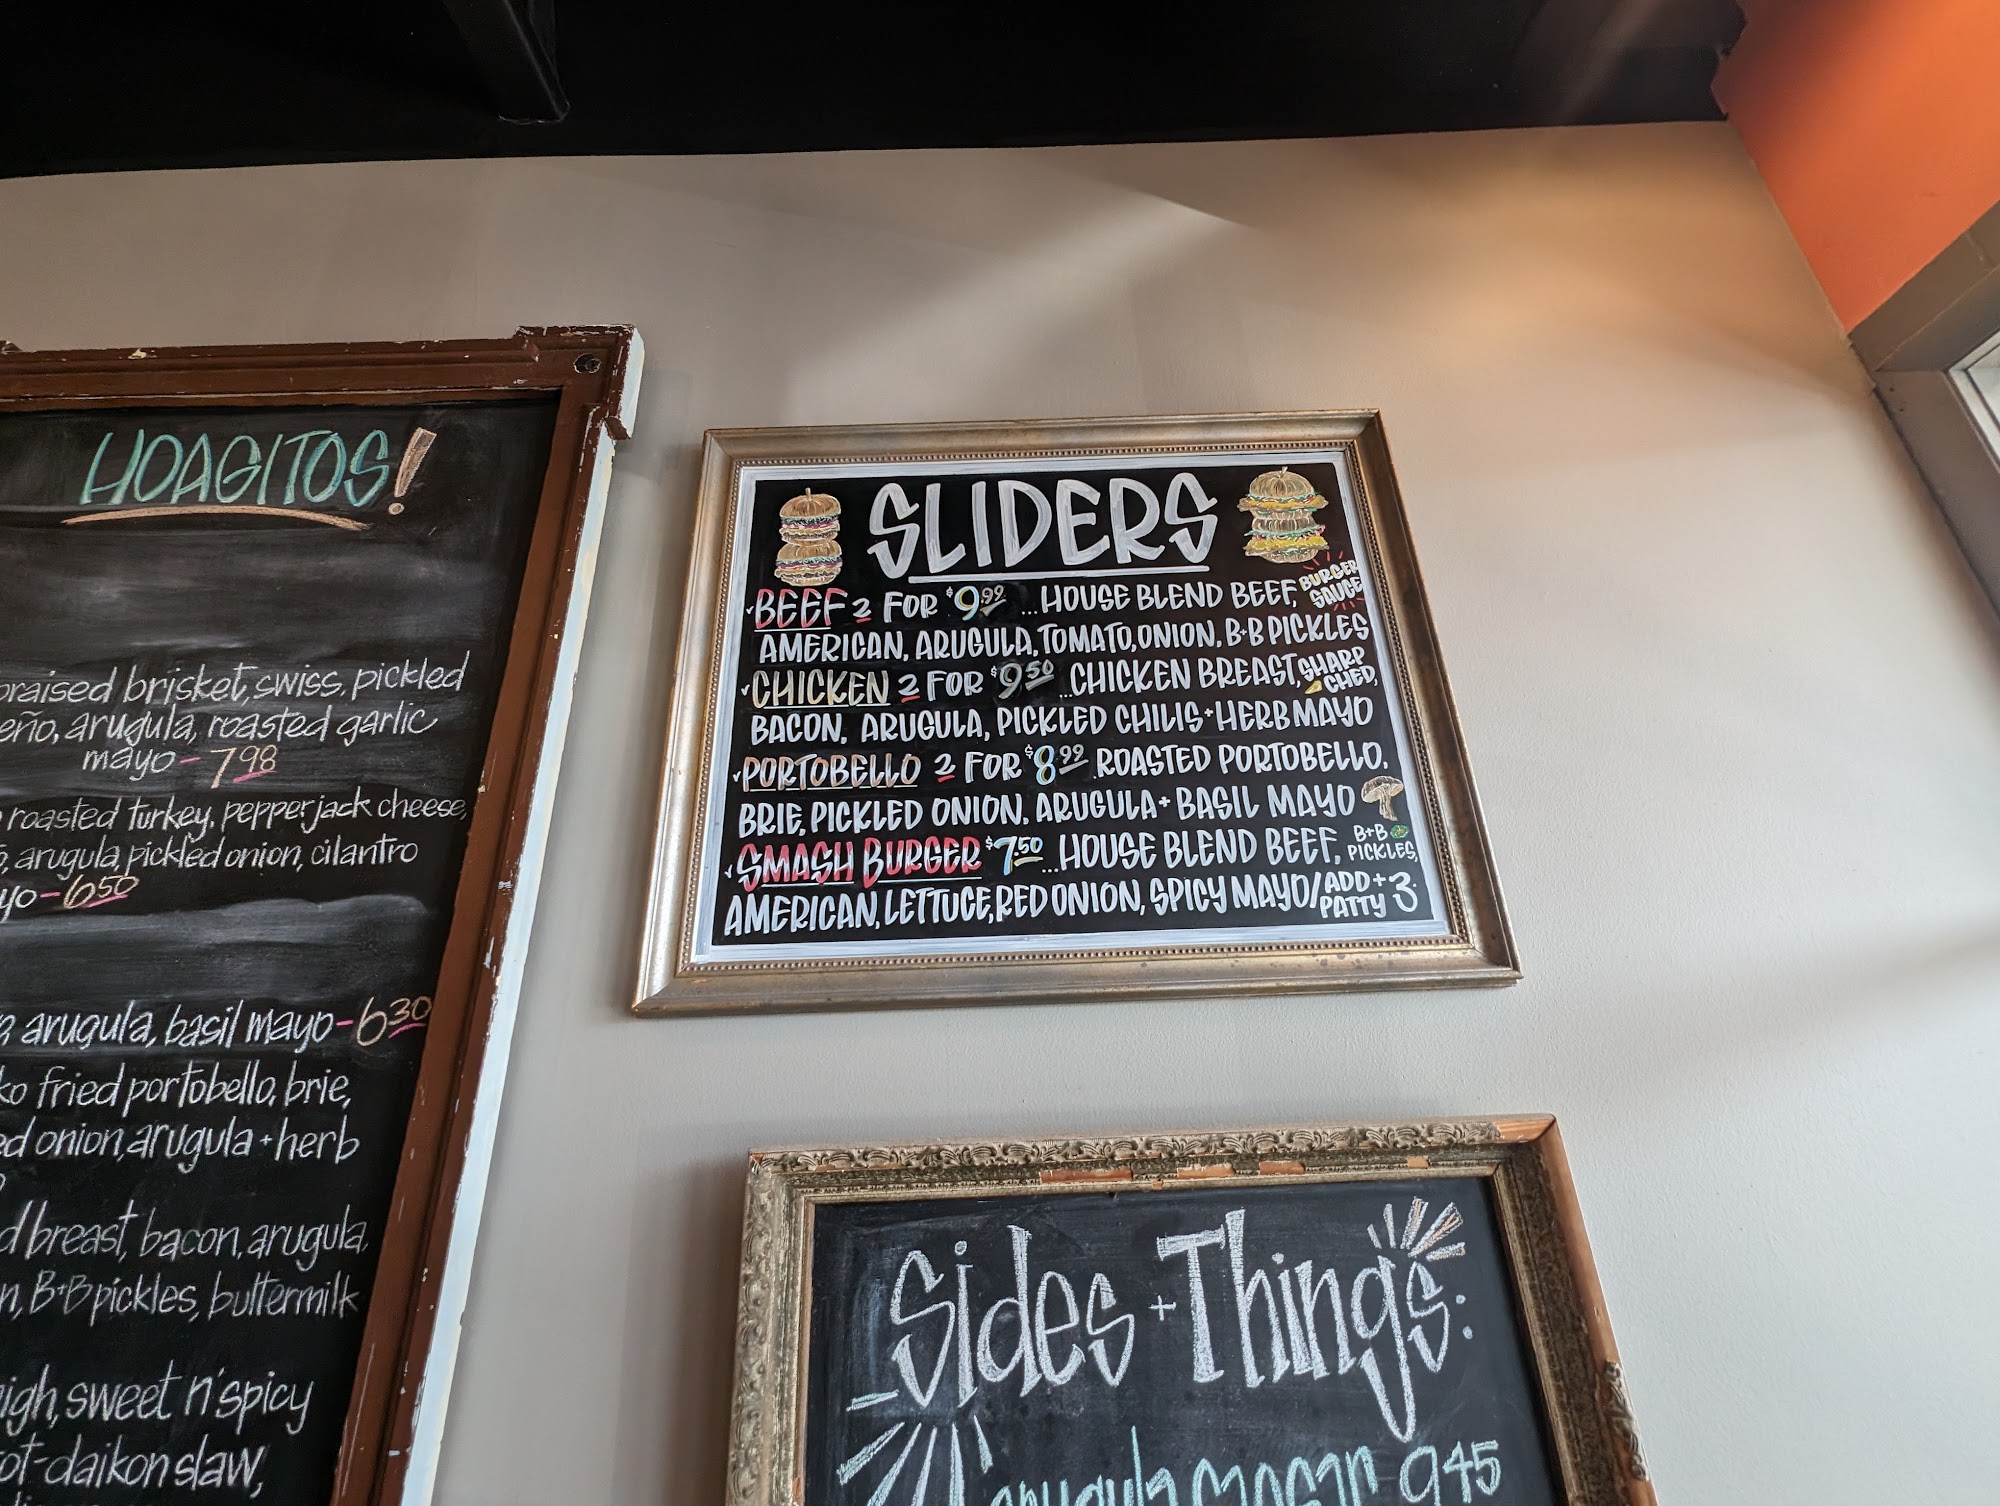 HOAGITOS!
braised brisket, swiss, pickled
eño, arugula, roasted garlic
mayo - 7 98
roasted turkey, pepper jack cheese,
arugula, pickled onion, cilantro
yo - 6 50
arugula, basil mayo - 6 30
ko fried portobello, brie,
ed onion, arugula + herb
d breast, bacon, arugula,
n, B+B pickles, buttermilk
igh, sweet n' spicy
ot-daikon slaw,
SLIDERS
BEEF 2 FOR $9.99 ...HOUSE BLEND BEEF, BURGER SAUCE
AMERICAN, ARUGULA, TOMATO, ONION, B+B PICKLES
CHICKEN 2 FOR $9.50 ...CHICKEN BREAST, SHARP CHED,
BACON, ARUGULA, PICKLED CHILIS + HERB MAYO
PORTOBELLO 2 FOR $8.99 .ROASTED PORTOBELLO,
BRIE, PICKLED ONION, ARUGULA + BASIL MAYO
SMASH BURGER $7.50 ...HOUSE BLEND BEEF, B+B PICKLES,
AMERICAN, LETTUCE, RED ONION, SPICY MAYO/ADD + PATTY 3.
Sides + Things:
arugula caesar 9 45